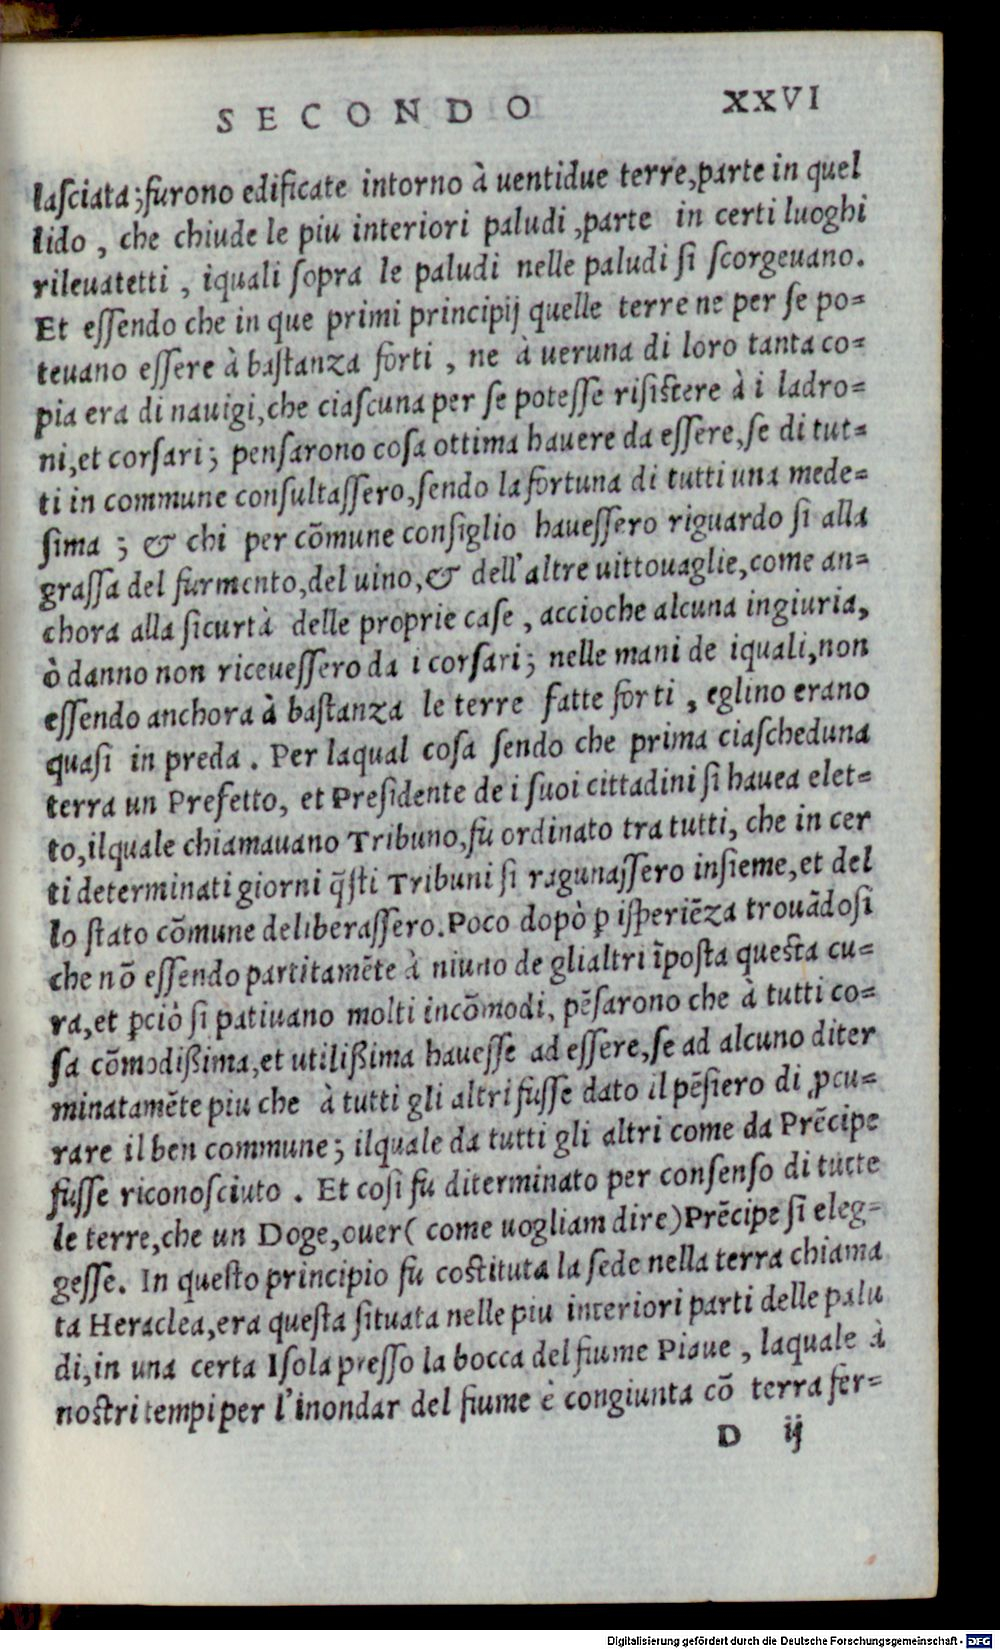 SECONDO XXVI
laſciata;furono edificate intorno à uentidue terre,parte in quel
lido , che chiude le piu interiori paludi ,parte in certi luoghi
rileuatetti , iquali ſopra le paludi nelle paludi ſi ſcorgeuano.
Et eſſendo che in que primi principij quelle terre ne per ſe po=
teuano eſſere à baſtanza forti , ne à ueruna di loro tanta co=
pia era di nauigi,che ciaſcuna per ſe poteſſe riſiſtere à i ladro=
ni,et corſari; penſarono coſa ottima hauere da eſſere,ſe di tut=
ti in commune conſultaſſero,ſendo la fortuna di tutti una mede=
ſima ; & chi per cõmune conſiglio haueſſero riguardo ſi alla
graſſa del furmento,del uino,& dell'altre uittouaglie,come an=
chora alla ſicurtà delle proprie caſe , accioche alcuna ingiuria,
ò danno non riceueſſero da i corſari; nelle mani de iquali,non
eſſendo anchora à baſtanza le terre fatte forti , eglino erano
quaſi in preda . Per laqual coſa ſendo che prima ciaſcheduna
terra un Prefetto, et Preſidente de i ſuoi cittadini ſi hauea elet=
to,ilquale chiamauano Tribuno,fu ordinato tra tutti, che in cer
ti determinati giorni q̃ſti Tribuni ſi ragunaſſero inſieme,et del
lo ſtato cõmune deliberaſſero.Poco dopò ꝑ iſperiẽza trouãdoſi
che nõ eſſendo partitamẽte à niuno de glialtri ĩpoſta queſta cu=
ra,et ꝑciò ſi patiuano molti incõmodi, pẽſarono che à tutti co=
ſa cõmodißima,et utilißima haueſſe ad eſſere,ſe ad alcuno diter
minatamẽte piu che à tutti gli altri fuſſe dato il pẽſiero di ꝓcu=
rare il ben commune; ilquale da tutti gli altri come da Prẽcipe
fuſſe riconoſciuto . Et coſi fu diterminato per conſenſo di tutte
le terre,che un Doge,ouer( come uogliam dire)Prẽcipe ſi eleg=
geſſe. In queſto principio fu coſtituta la ſede nella terra chiama
ta Heraclea,era queſta ſituata nelle piu interiori parti delle palu
di,in una certa Iſola preſſo la bocca del fiume Piaue , laquale à
noſtri tempi per l'inondar del fiume è congiunta cõ terra fer=
D ij
Digitalisierung gefördert durch die Deutsche Forschungsgemeinschaft - DFG